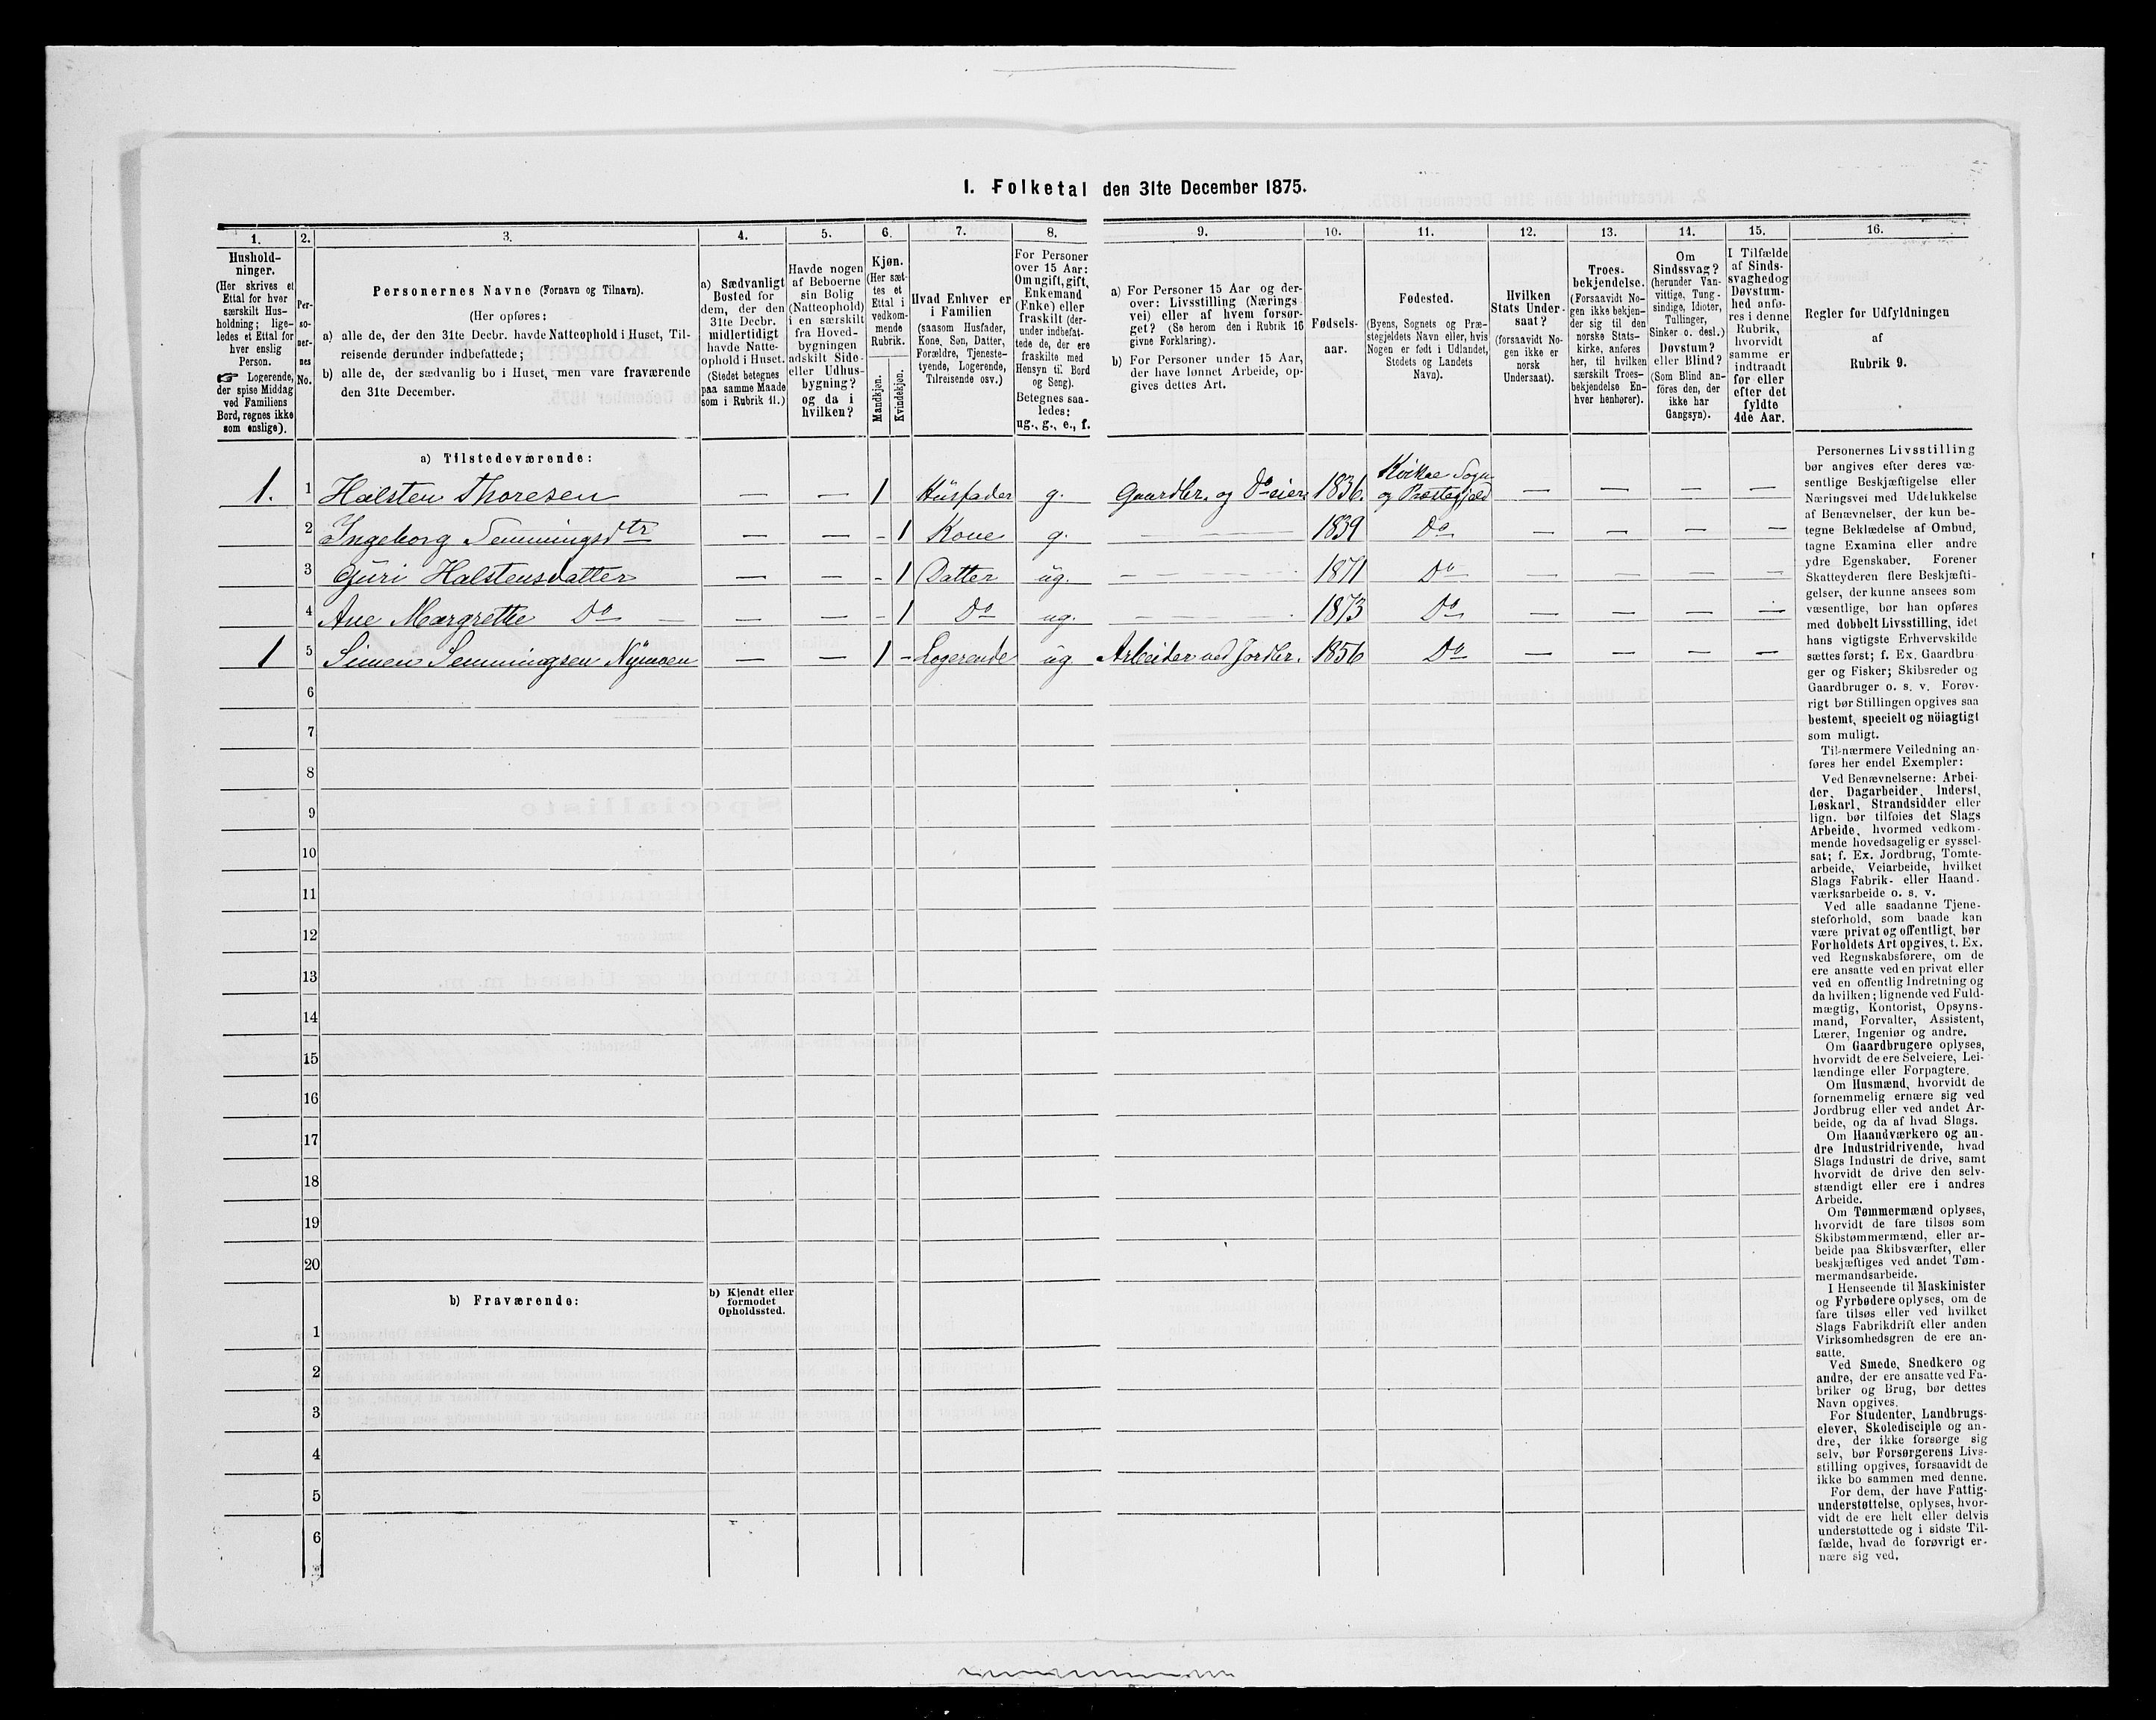 I. Folketal den 31te December 1875.
1. 2. 3. 4. 5. 6. 7. 8. 9. 10. 11. 12. 13. 14. 15. 16.
Hushold-
ninger.
(Her skrives et
Ettal for hver
særskilt Hus-
holdning; lige-
ledes et Ettal for
hver enslig
Person.
☞ Logerende,
der spise Middag
ved Familiens
Bord, regnes ikke
som enslige).
Per-
so-
ner-
nes
No.
Personernes Navne (Fornavn og Tilnavn).
(Her opføres:
a) alle de, der den 31te Decbr. havde Natteophold i Huset, Til-
reisende derunder indbefattede;
b) alle de, der sædvanlig bo i Huset, men vare fraværende
den 31te December.
a) Sædvanligt
Bosted for
dem, der den
31te Decbr.
midlertidigt
havde Natte-
ophold i Huset.
(Stedet betegnes
paa samme Maade
som i Rubrik 11.)
Havde nogen
af Beboerne
sin Bolig
(Natteophold)
i en særskilt
fra Hoved-
bygningen
adskilt Side-
eller Udhus-
bygning?
og da i
hvilken?
Kjøn.
(Her sæt-
tes et
Ettal i
vedkom-
mende
Rubrik.
Mandkjøn.
Kvindekjøn.
Hvad Enhver er
i Familien
(saasom Husfader,
Kone, Søn, Datter,
Forældre, Tjeneste-
tyende, Logerende,
Tilreisende osv.)
For Personer
over 15 Aar:
Om ugift, gift,
Enkemand
(Enke) eller
fraskilt (der-
under indbefat-
tede de, der ere
fraskilte med
Hensyn til Bord
og Seng).
Betegnes saa-
ledes:
ug., g., e., f.
a) For Personer 15 Aar og der-
over: Livsstilling (Nærings
vei) eller af hvem forsør-
get? (Se herom den i Rubrik 16
givne Forklaring).
b) For Personer under 15 Aar,
der have lønnet Arbeide, op-
gives dettes Art.
Fødsels-
aar.
Fødested.
(Byens, Sognets og Præ-
stegjeldets Navn eller, hvis
Nogen er født i Udlandet,
Stedets og Landets
Navn).
Hvilken
Stats Under-
saat?
(forsaavidt No-
gen ikke er
norsk
Undersaat).
Troes-
bekjendelse.
(Forsaavidt No-
gen ikke bekjen-
der sig til den
norske Stats-
kirke, anføres
her, til hvilken
særskilt Troes-
bekjendelse En-
hver henhører).
Om
Sindssvag?
(herunder Van-
vittige, Tung-
sindige, Idioter,
Tullinger,
Sinker o. desl.)
Døvstum?
eller Blind?
(Som Blind an-
föres den, der
ikke har
Gangsyn).
I Tilfælde
af Sinds-
svaghed og
Døvstum-
hed anfø-
res i denne
Rubrik,
hvorvidt
samme er
indtraadt
før eller
efter det
fyldte
4de Aar.
Regler for Udfyldningen
af
Rubrik 9.
a) Tilstedeværende:
1. 1 Halsten Thoresen — — 1 Husfader g. Gaardbr. og Do eier 1836. Kvikne Sogn og Præstegjeld — — — —
2 Ingeborg Semmingsdtr — — - 1 Kone g. 1839 Do — — — —
3 Guri Halstensdatter — — - 1 Datter ug. 1871 Do — — — —
4 Ane Margrethe Do — — - 1 Do ug. 1873 Do — — — —
1 5 Simen Semmingsen Nymoen — — 1 - Logerende ug Arbeider ved Jordbr. 1856 Do — — — —
6
7
8
9
10
11
12
13
14
15
16
17
18
19
20
b) Fraværende:
b) Kjendt eller
formodet
Opholdssted.
1
2
3
4
5
6
Personernes Livsstilling
bør angives efter deres væ-
sentlige Beskjæftigelse eller
Næringsvei med Udelukkelse
af Benævnelser, der kun be-
tegne Beklædelse af Ombud,
tagne Examina eller andre
ydre Egenskaber. Forener
Skatteyderen flere Beskjæfti-
gelser, der kunne ansees som
væsentlige, bør han opføres
med dobbelt Livsstilling, idet
hans vigtigste Erhvervskilde
sættes først; f. Ex. Gaardbru-
ger og Fisker; Skibsreder og
Gaardbruger o. s. v. Forøv-
rigt bør Stillingen opgives saa
bestemt, specielt og nöiagtigt
som muligt.
Til nærmere Veiledning an-
føres her endel Exempler:
Ved Benævnelserne: Arbei-
der, Dagarbeider, Inderst,
Løskarl, Strandsidder eller
lign. bør tilføies det Slags
Arbeide, hvormed vedkom-
mende hovedsagelig er syssel-
sat; f. Ex. Jordbrug, Tomte-
arbeide, Veiarbeide, hvilket
Slags Fabrik- eller Haand-
værksarbeide o. s. v.
Ved alle saadanne Tjene-
steforhold, som baade kan
være privat og offentligt, bør
Forholdets Art opgives, t. Ex.
ved Regnskabsførere, om de
ere ansatte ved en privat eller
ved en offentlig Indretning og
da hvilken; lignende ved Fuld-
mægtig, Kontorist, Opsyns-
mand, Forvalter, Assistent,
Lærer, Ingeniør og andre.
Om Gaardbrugere oplyses,
hvorvidt de ere Selveiere, Lei-
lændinge eller Forpagtere.
Om Husmænd, hvorvidt de
fornemmelig ernære sig ved
Jordbrug eller ved andet Ar-
beide, og da af hvad Slags.
Om Haandværkere og an-
dre Industridrivende, hvad
Slags Industri de drive, samt
hvorvidt de drive den selv-
stændigt eller ere i andres
Arbeide.
Om Tømmermænd oplyses,
hvorvidt de fare tilsøs som
Skibstømmermænd, eller ar-
beide paa Skibsværfter, eller
beskjæftiges ved andet Tøm-
mermandsarbeide.
I Henseende til Maskinister
og Fyrbødere oplyses, om de
fare tilsøs eller ved hvilket
Slags Fabrikdrift eller anden
Virksomhedsgren de ere an-
satte.
Ved Smede, Snedkere og
andre, der ere ansatte ved Fa-
briker og Brug, bør dettes
Navn opgives.
For Studenter, Landbrugs-
elever, Skoledisciple og an-
dre, der ikke forsørge sig
selv, bør Forsørgerens Livs-
stilling opgives, forsaavidt de
ikke bo sammen med denne.
For dem, der have Fattig-
understøttelse, oplyses, hvor-
vidt de ere helt eller delvis
understøttede og i sidste Til-
fælde, hvad de forøvrigt er-
nære sig ved.